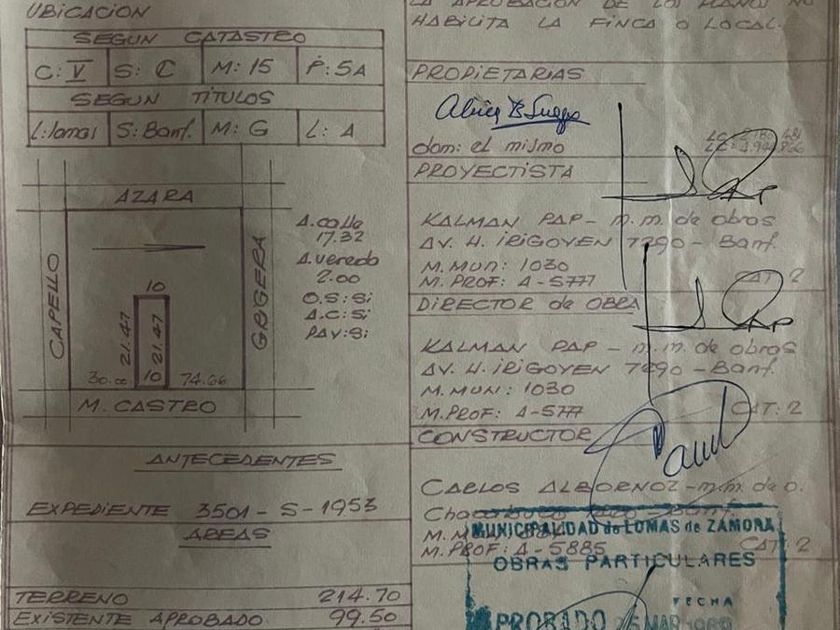 UBICACION
SEGUN CATASTRO
C: V S: C M: 15 P: 5A
SEGUN TÍTULOS
L: lomas S: Banf. M: G L: A
AZARA
CAPELLO
10
21.47
21.47
30.00 10 74.66
M. CASTRO
A. calle
17.32
A. vereda
2.00
O.S: Si
A.C: Si
PAV: Si
ANTECEDENTES
EXPEDIENTE 3501 - S - 1953
AREAS
TERRENO 214.70
EXISTENTE APROBADO 99.50
LA APROBACION DE LOS PLANOS NO
HABILITA LA FINCA O LOCAL.
PROPIETARIAS
dom: el mismo
PROYECTISTA
KALMAN PAP - m.m. de obras
AV. H. IRIGOYEN 7290 - Banf.
M. MUN: 1030
M. PROF: A-5777 CAT: 2
DIRECTOR de OBRA
KALMAN PAP - m.m. de obras
AV. H. IRIGOYEN 7290 - Banf.
M. MUN: 1030
M. PROF: A-5777 CAT: 2
CONSTRUCTOR
CARLOS ALBORNOZ - m.m. de o.
M. PROF: A-5885 CAT: 2
MUNICIPALIDAD de LOMAS de ZAMORA
OBRAS PARTICULARES
FECHA
APROBADO MAR